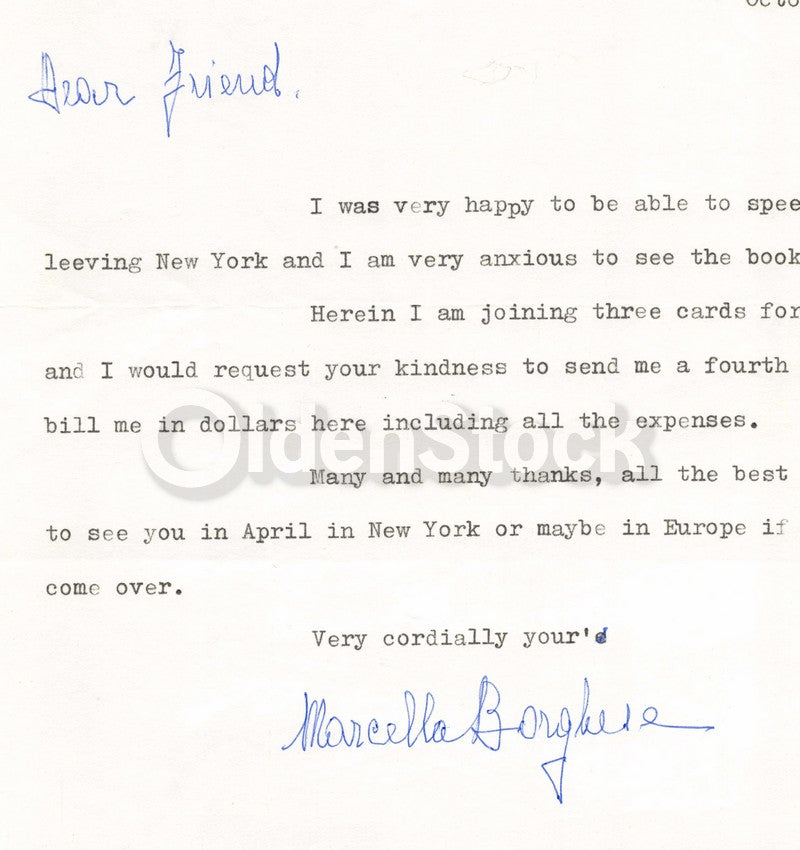 Octo
Dear Friend.
I was very happy to be able to spee
leeving New York and I am very anxious to see the book
Herein I am joining three cards for
and I would request your kindness to send me a fourth
bill me in dollars here including all the expenses.
OldenStock
Many and many thanks, all the best
to see you in April in New York or maybe in Europe if
come over.
Very cordially your's
Marcella Borghese